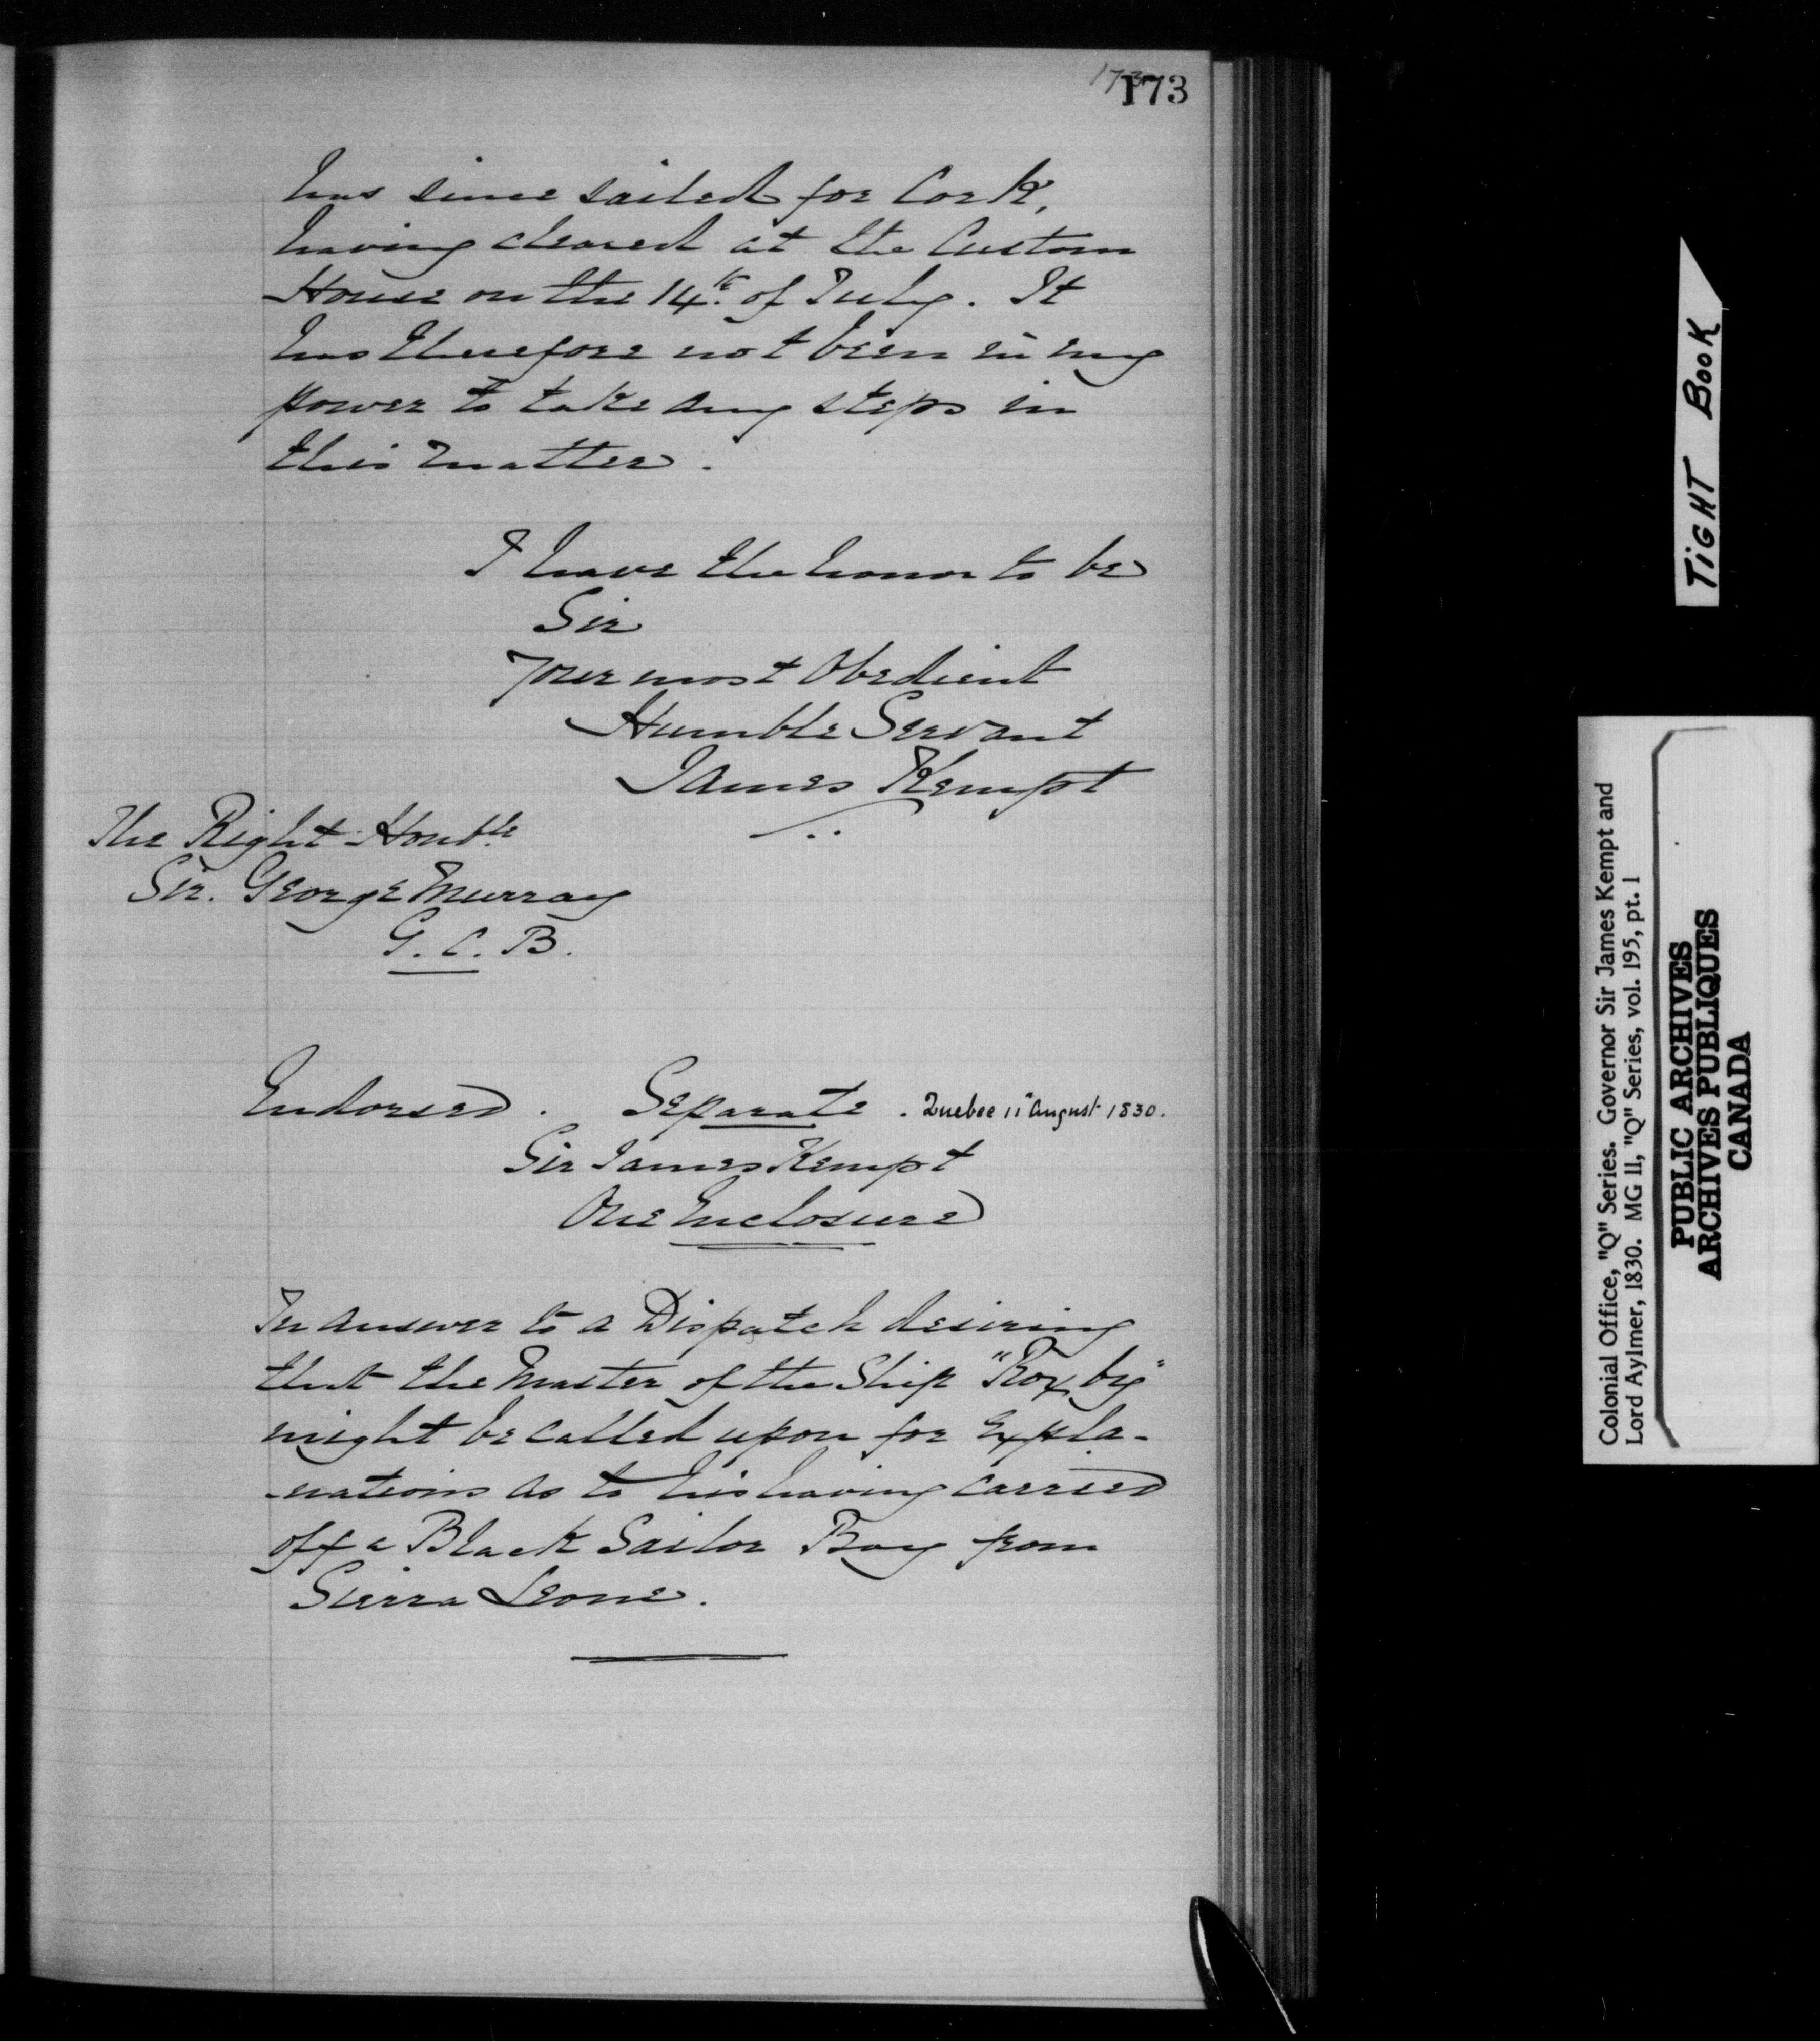 173
173
has since sailed for Cork,
having cleared at the Custom
House on the 14th. of July. It
has therefore not been in my
power to take any steps in
this matter.
I have the honor to be
Sir
Your most Obedient
Humble Servant
James Kempt
The Right Honble.
Sir. George Murray
G. C. B.
Endorsed. Separate. Quebec 11" August 1830.
Sir James Kempt
One Enclosure
In answer to a Dispatch desiring
that the Master of the Ship "Roxby"
might be called upon for Expla-
-nations as to his having carried
off a Black Sailor Boy from
Sierra Leone.
TIGHT BOOK
Colonial Office, "Q" Series. Governor Sir James Kempt and
Lord Aylmer, 1830. MG 11, "Q" Series, vol. 195, pt. 1
PUBLIC ARCHIVES
ARCHIVES PUBLIQUES
CANADA